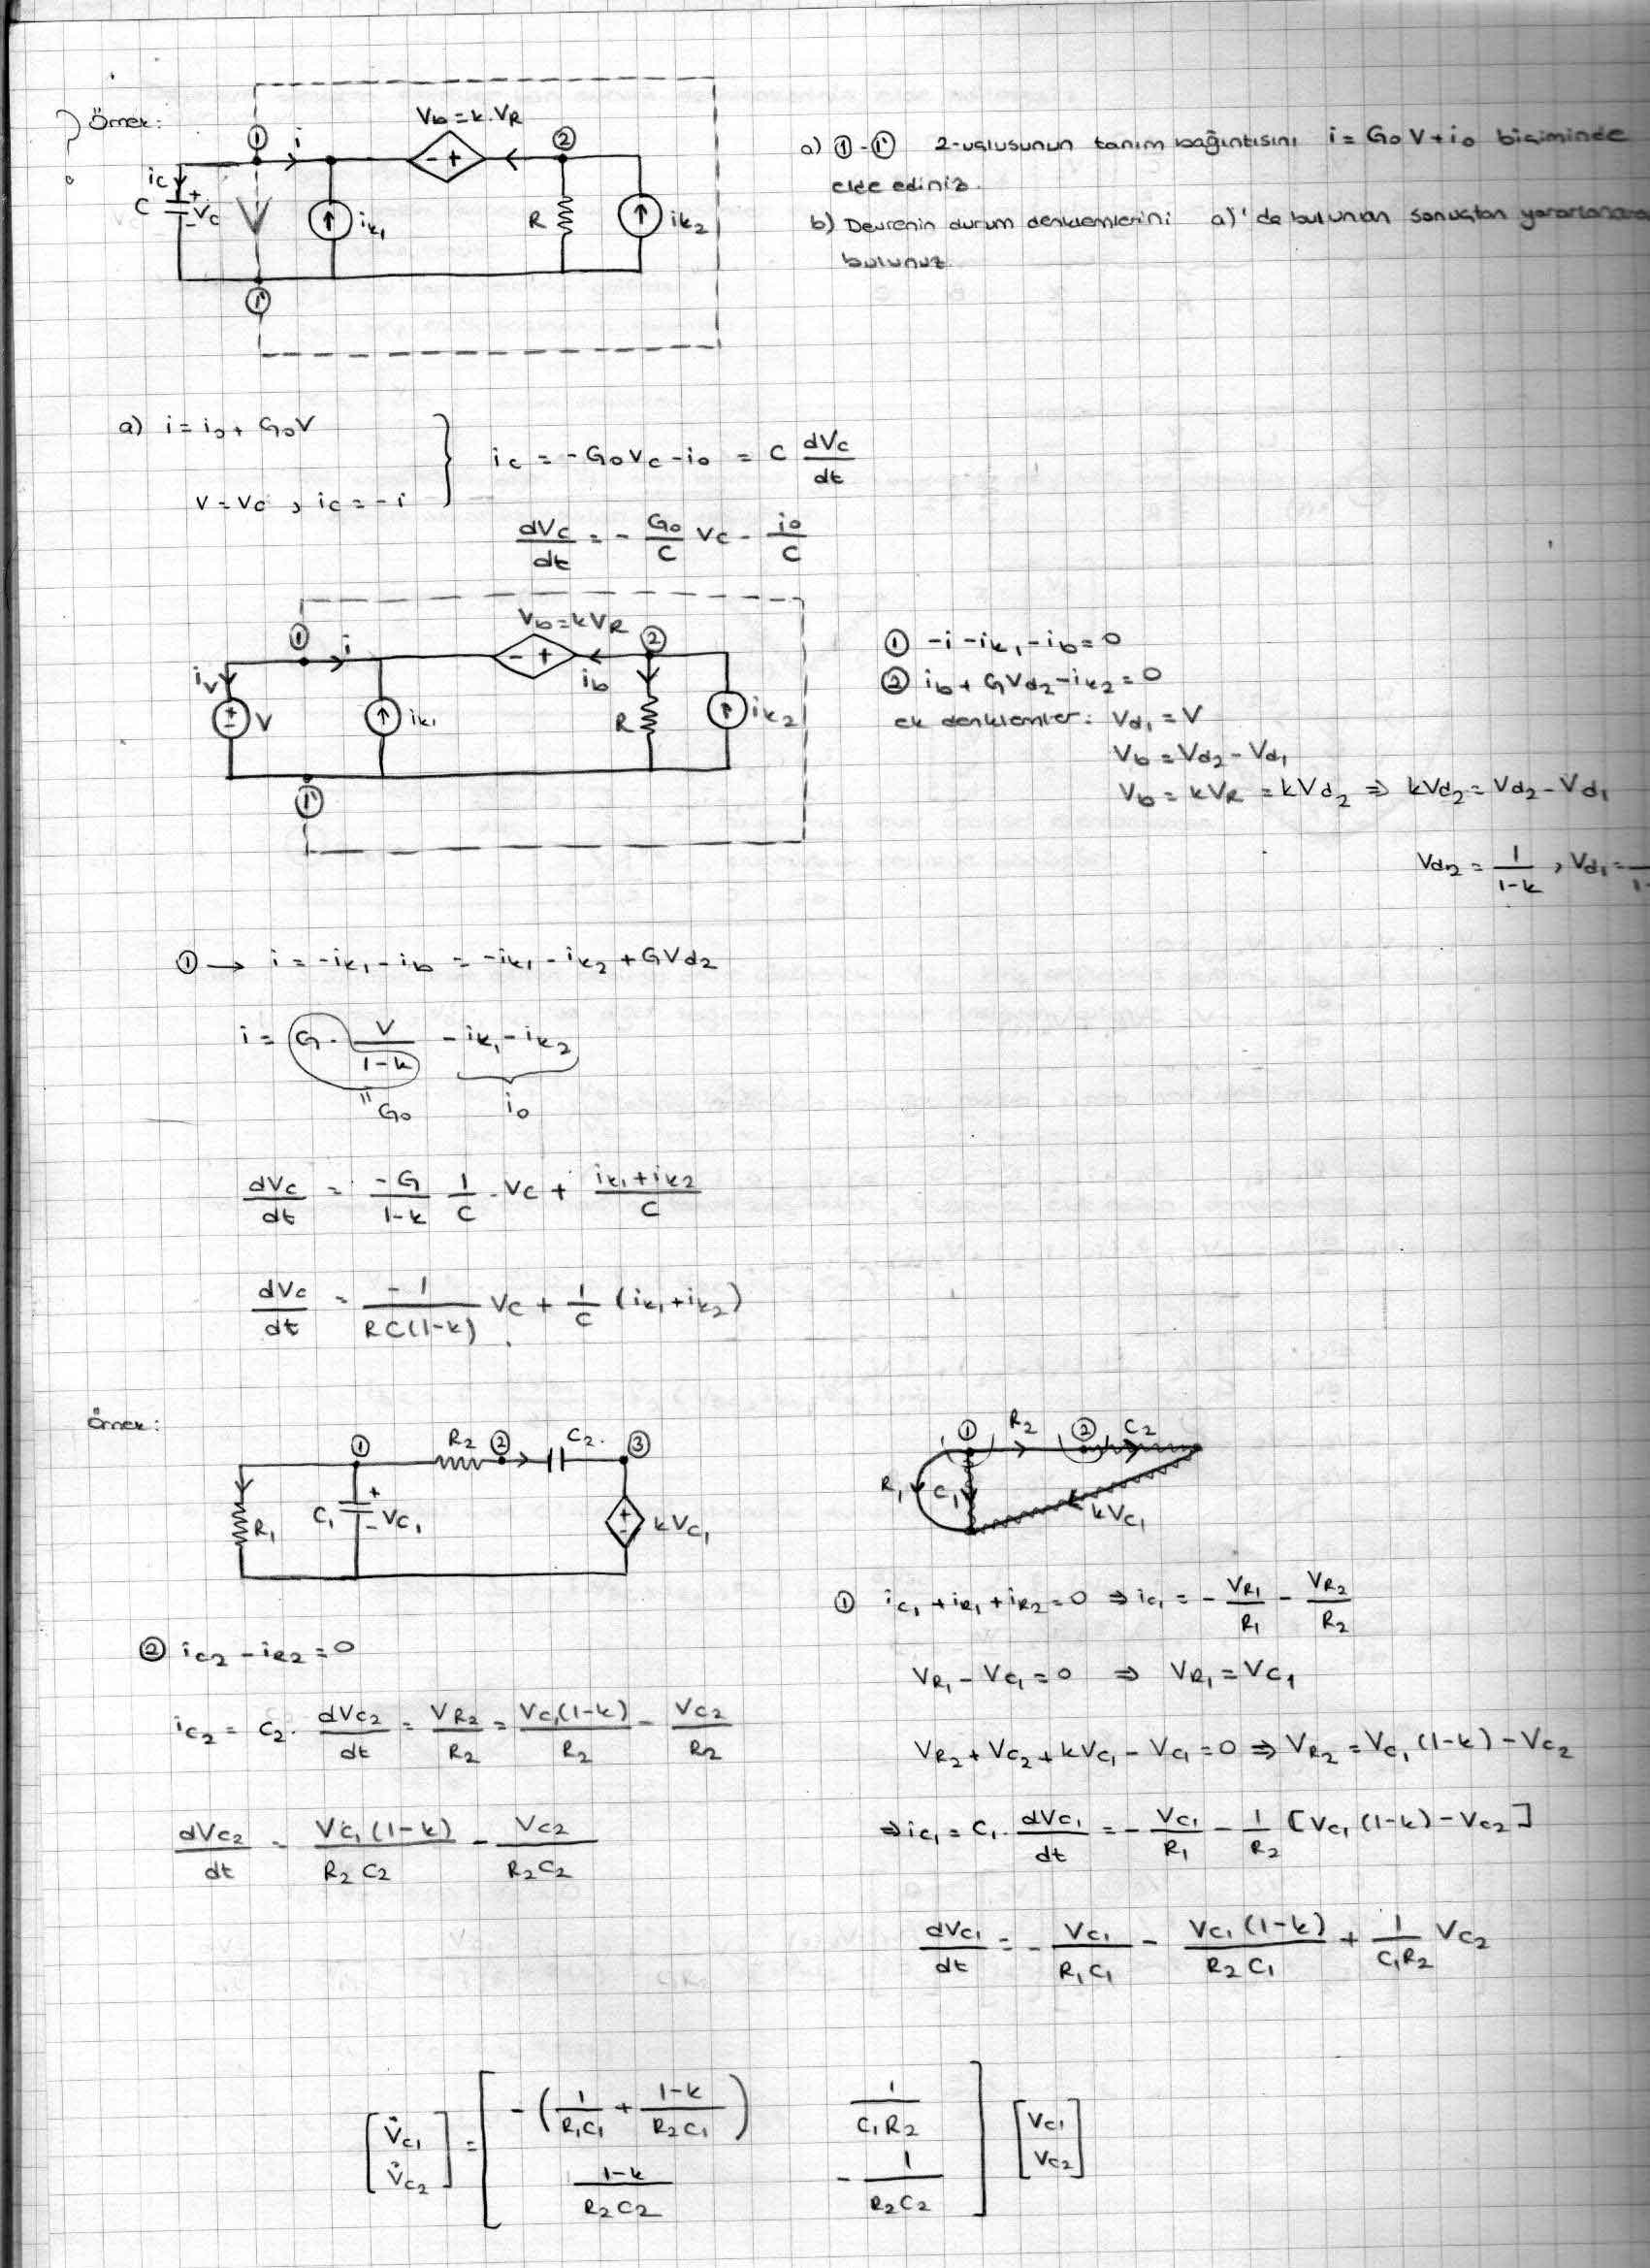 Örnek:
① i
Vb = k.VR
②
ic
C
+
Vc
-
V
ik1
R
ik2
①'
a) ①-①' 2-uçlusunun tanım bağıntısını i = G0 V + i0 biçiminde
elde ediniz.
b) Devrenin durum denklemlerini a)'da bulunan sonuçtan yararlanarak
bulunuz.
a) i = i0 + G0V
V = Vc , ic = -i
ic = -G0Vc - i0 = C dVc/dt
dVc/dt = - G0/C Vc - i0/C
① i
Vb = kVR
②
iv
V
ik1
ib
R
ik2
①'
① -i - ik1 - ib = 0
② ib + GVd2 - ik2 = 0
ek denklemler: Vd1 = V
Vb = Vd2 - Vd1
Vb = kVR = kVd2 ⇒ kVd2 = Vd2 - Vd1
Vd2 = 1/(1-k) , Vd1 =
① → i = -ik1 - ib = -ik1 - ik2 + GVd2
i = G . V/(1-k) - ik1 - ik2
" G0 i0
dVc/dt = -G/(1-k) 1/C . Vc + (ik1 + ik2)/C
dVc/dt = -1/(RC(1-k)) Vc + 1/C (ik1 + ik2)
Örnek:
① R2 ② C2 ③
R1
C1
+
-
VC1
+
-
kVC1
① R2 ② C2
R1
C1
kVC1
① iC1 + iR1 + iR2 = 0 ⇒ iC1 = - VR1/R1 - VR2/R2
VR1 - VC1 = 0 ⇒ VR1 = VC1
VR2 + VC2 + kVC1 - VC1 = 0 ⇒ VR2 = VC1 (1-k) - VC2
⇒ iC1 = C1 . dVC1/dt = - VC1/R1 - 1/R2 [VC1 (1-k) - VC2]
dVC1/dt = - VC1/(R1C1) - VC1 (1-k)/(R2C1) + 1/(C1R2) VC2
② iC2 - iR2 = 0
iC2 = C2 . dVC2/dt = VR2/R2 = VC1(1-k)/R2 - VC2/R2
dVC2/dt = VC1 (1-k)/(R2C2) - VC2/(R2C2)
[V̇C1 V̇C2] = [-(1/(R1C1) + (1-k)/(R2C1)) 1/(C1R2)
(1-k)/(R2C2) -1/(R2C2)] [VC1 VC2]